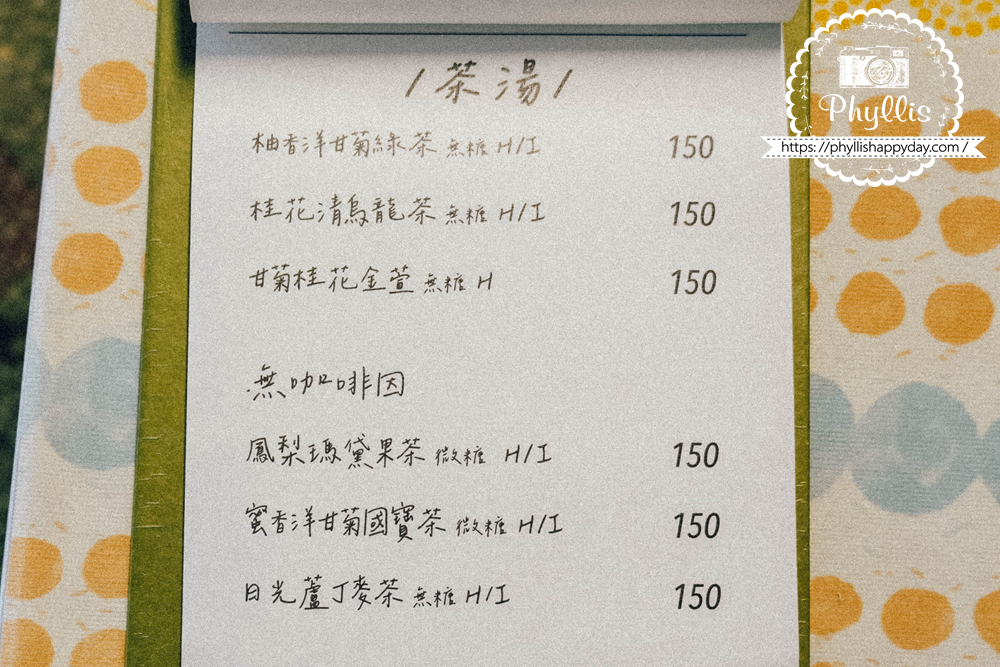 / 茶湯 /
柚香洋甘菊綠茶 無糖 H/I 150
桂花清烏龍茶 無糖 H/I 150
甘菊桂花金萱 無糖 H 150
無咖啡因
鳳梨瑪黛果茶 微糖 H/I 150
蜜香洋甘菊國寶茶 微糖 H/I 150
日光蘆丁麥茶 無糖 H/I 150
Phyllis
https://phyllishappyday.com /